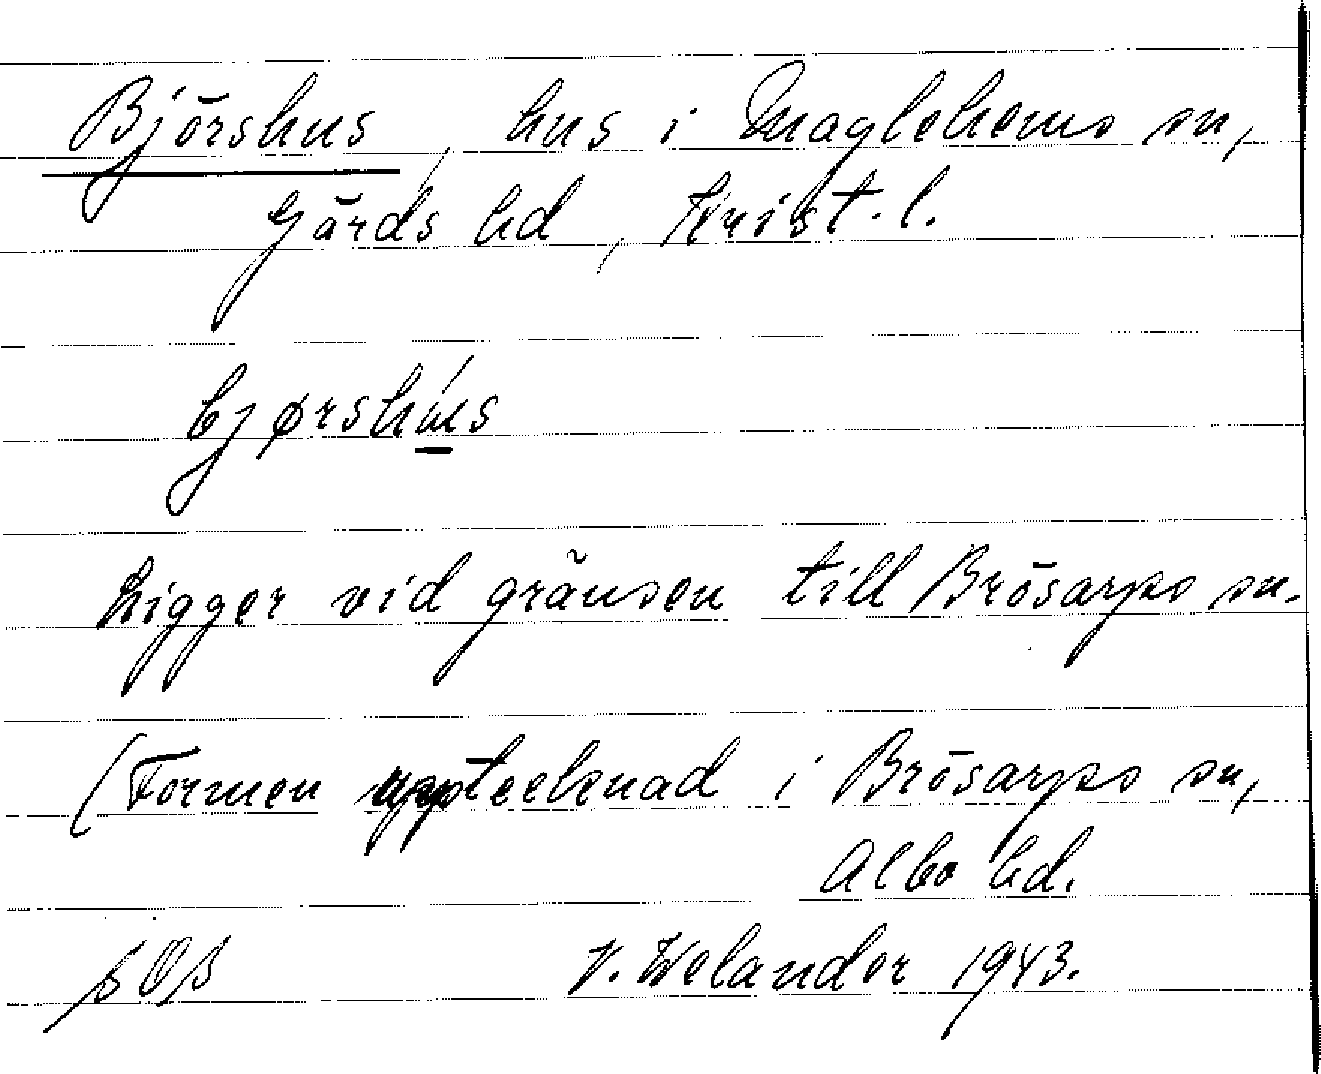 Björshus, hus i Maglehems sn,
Gärds hd, Krist. l.
bjørshús
Ligger vid gränsen till Brösarps sn.
(Formen upptecknad i Brösarps sn,
Albo hd.
V. Welander 1943.